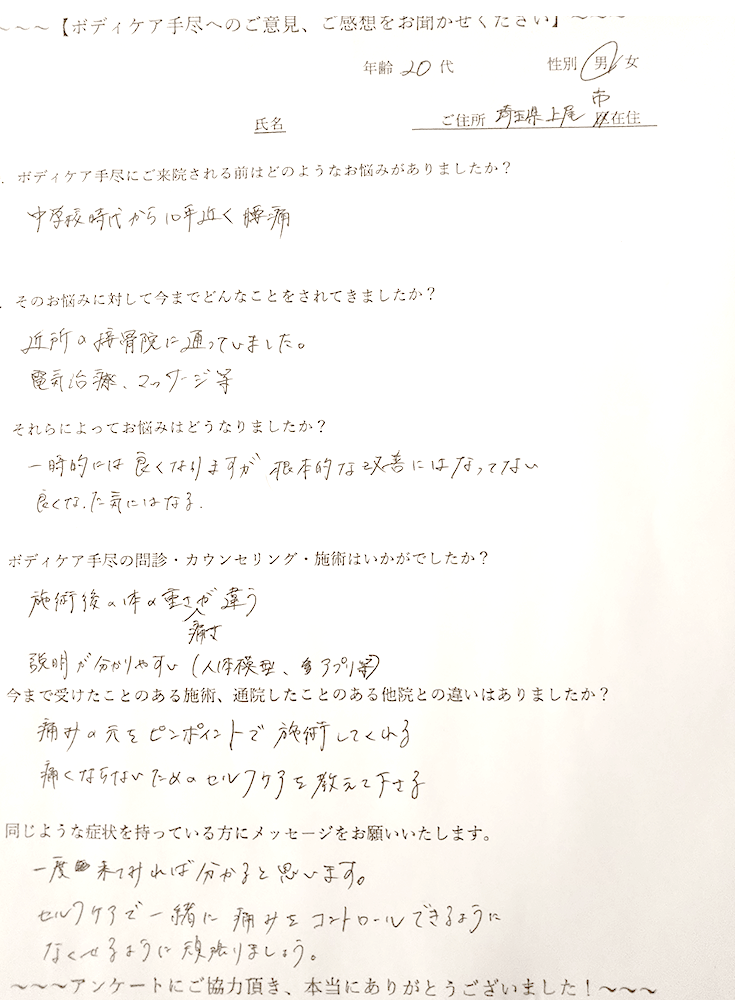 ～～～【ボディケア手尽へのご意見、ご感想をお聞かせください】～～～
年齢 20 代 性別 男/女
氏名 ご住所 埼玉県上尾市在住
. ボディケア手尽にご来院される前はどのようなお悩みがありましたか？
中学校時代から10年近く腰痛
. そのお悩みに対して今までどんなことをされてきましたか？
近所の接骨院に通っていました。
電気治療、マッサージ等
それらによってお悩みはどうなりましたか？
一時的には良くなりますが根本的な改善にはなってない
良くなった気にはなる.
ボディケア手尽の問診・カウンセリング・施術はいかがでしたか？
施術後の体の重さが違う
痛さ
説明が分かりやすい（人体模型、アプリ等）
今まで受けたことのある施術、通院したことのある他院との違いはありましたか？
痛みの元をピンポイントで施術してくれる
痛くならないためのセルフケアを教えて下さる
同じような症状を持っている方にメッセージをお願いいたします。
一度来てみれば分かると思います。
セルフケアで一緒に痛みをコントロールできるように
なくせるように頑張りましょう。
～～～アンケートにご協力頂き、本当にありがとうございました！～～～